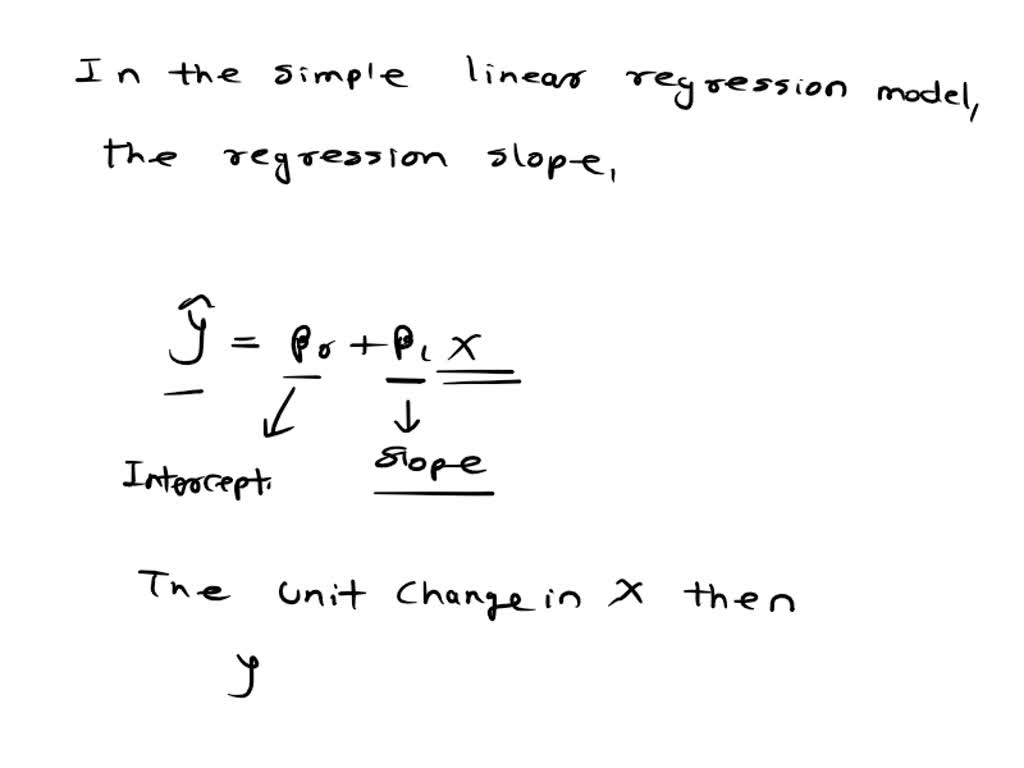 In the simple linear regression model,
the regression slope,
ŷ = β₀ + β₁ x
Intercept. slope
The unit change in x then
y